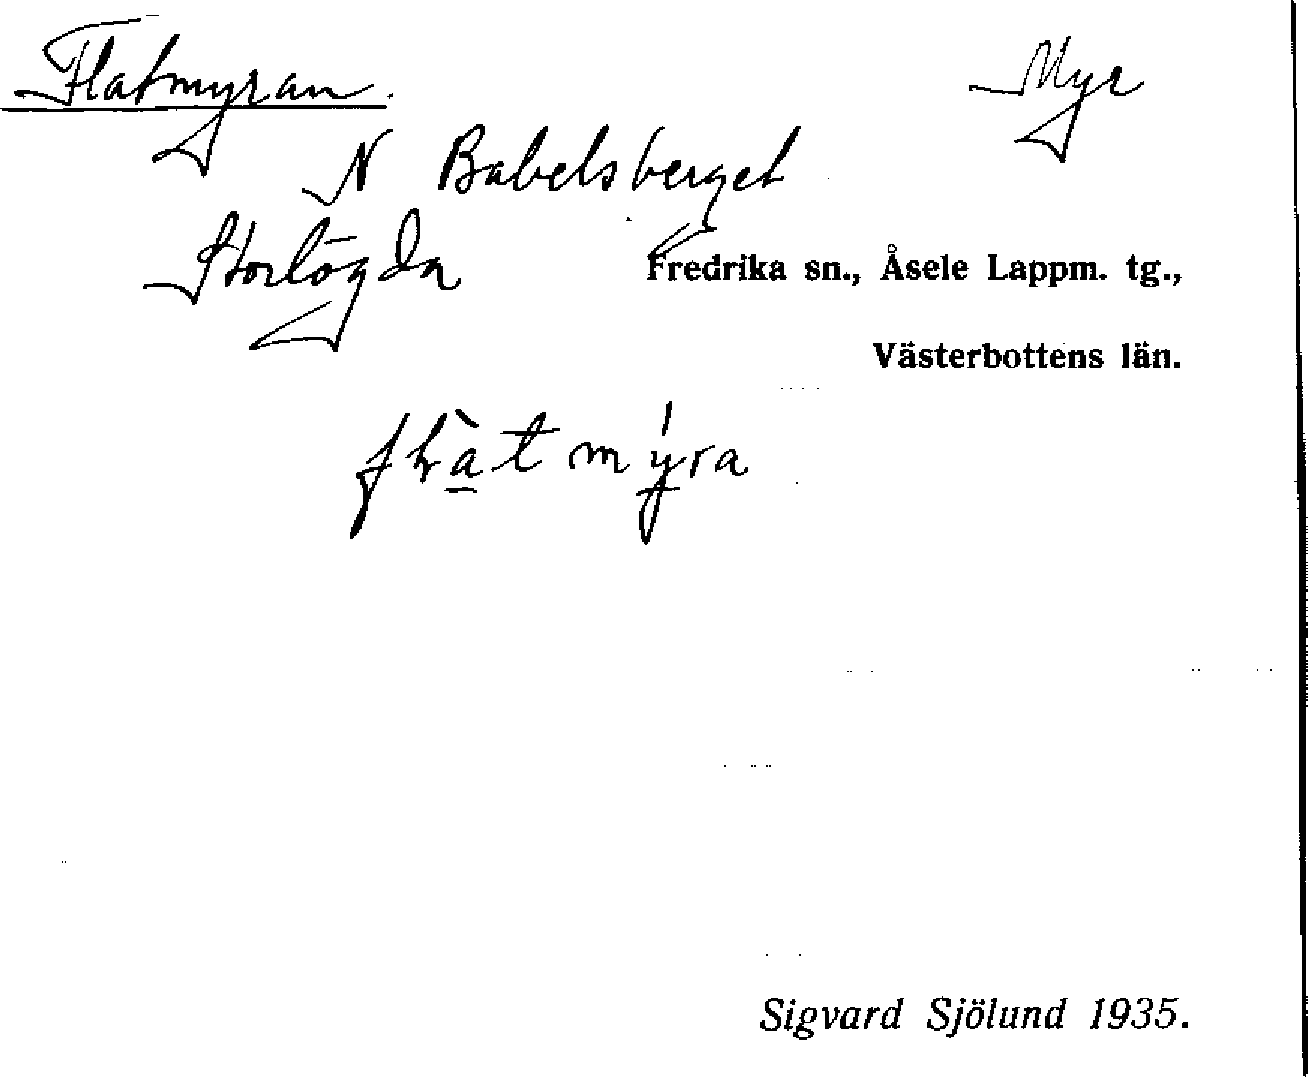 Flatmyran. Myr
N Babelsberget
Storlögda Fredrika sn., Åsele Lappm. tg.,
Västerbottens län.
Sigvard Sjölund 1935.